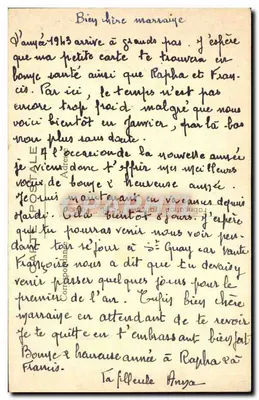 Bien chère marraine
L'année 1943 arrive à grands pas. J'espère
que ma petite carte te trouvera en
bonne santé ainsi que Rapha et Fran-
cis. Par ici, le temps n'est pas
encore trop froid malgré que nous
voici bientôt en janvier, par là-bas
non plus sans doute.
A l'occasion de la nouvelle année
je viens donc t'offrir mes meilleurs
vœux de bonne & heureuse année.
Je suis maintenant en vacances depuis
Mardi. Celà vient 8 jours. J'espère
que tu pourras venir nous voir pen-
dant ton séjour à St Quay car tante
Françoise nous a dit que tu devais y
venir passer quelques jours pour le
premier de l'an. Enfin bien chère
marraine en attendant de te revoir
Je te quitte en t'embrassant bien fort
Bonne & heureuse année à Rapha & à
Francis.
Ta filleule Anna
CARTE POSTALE
Correspondance
Adresse